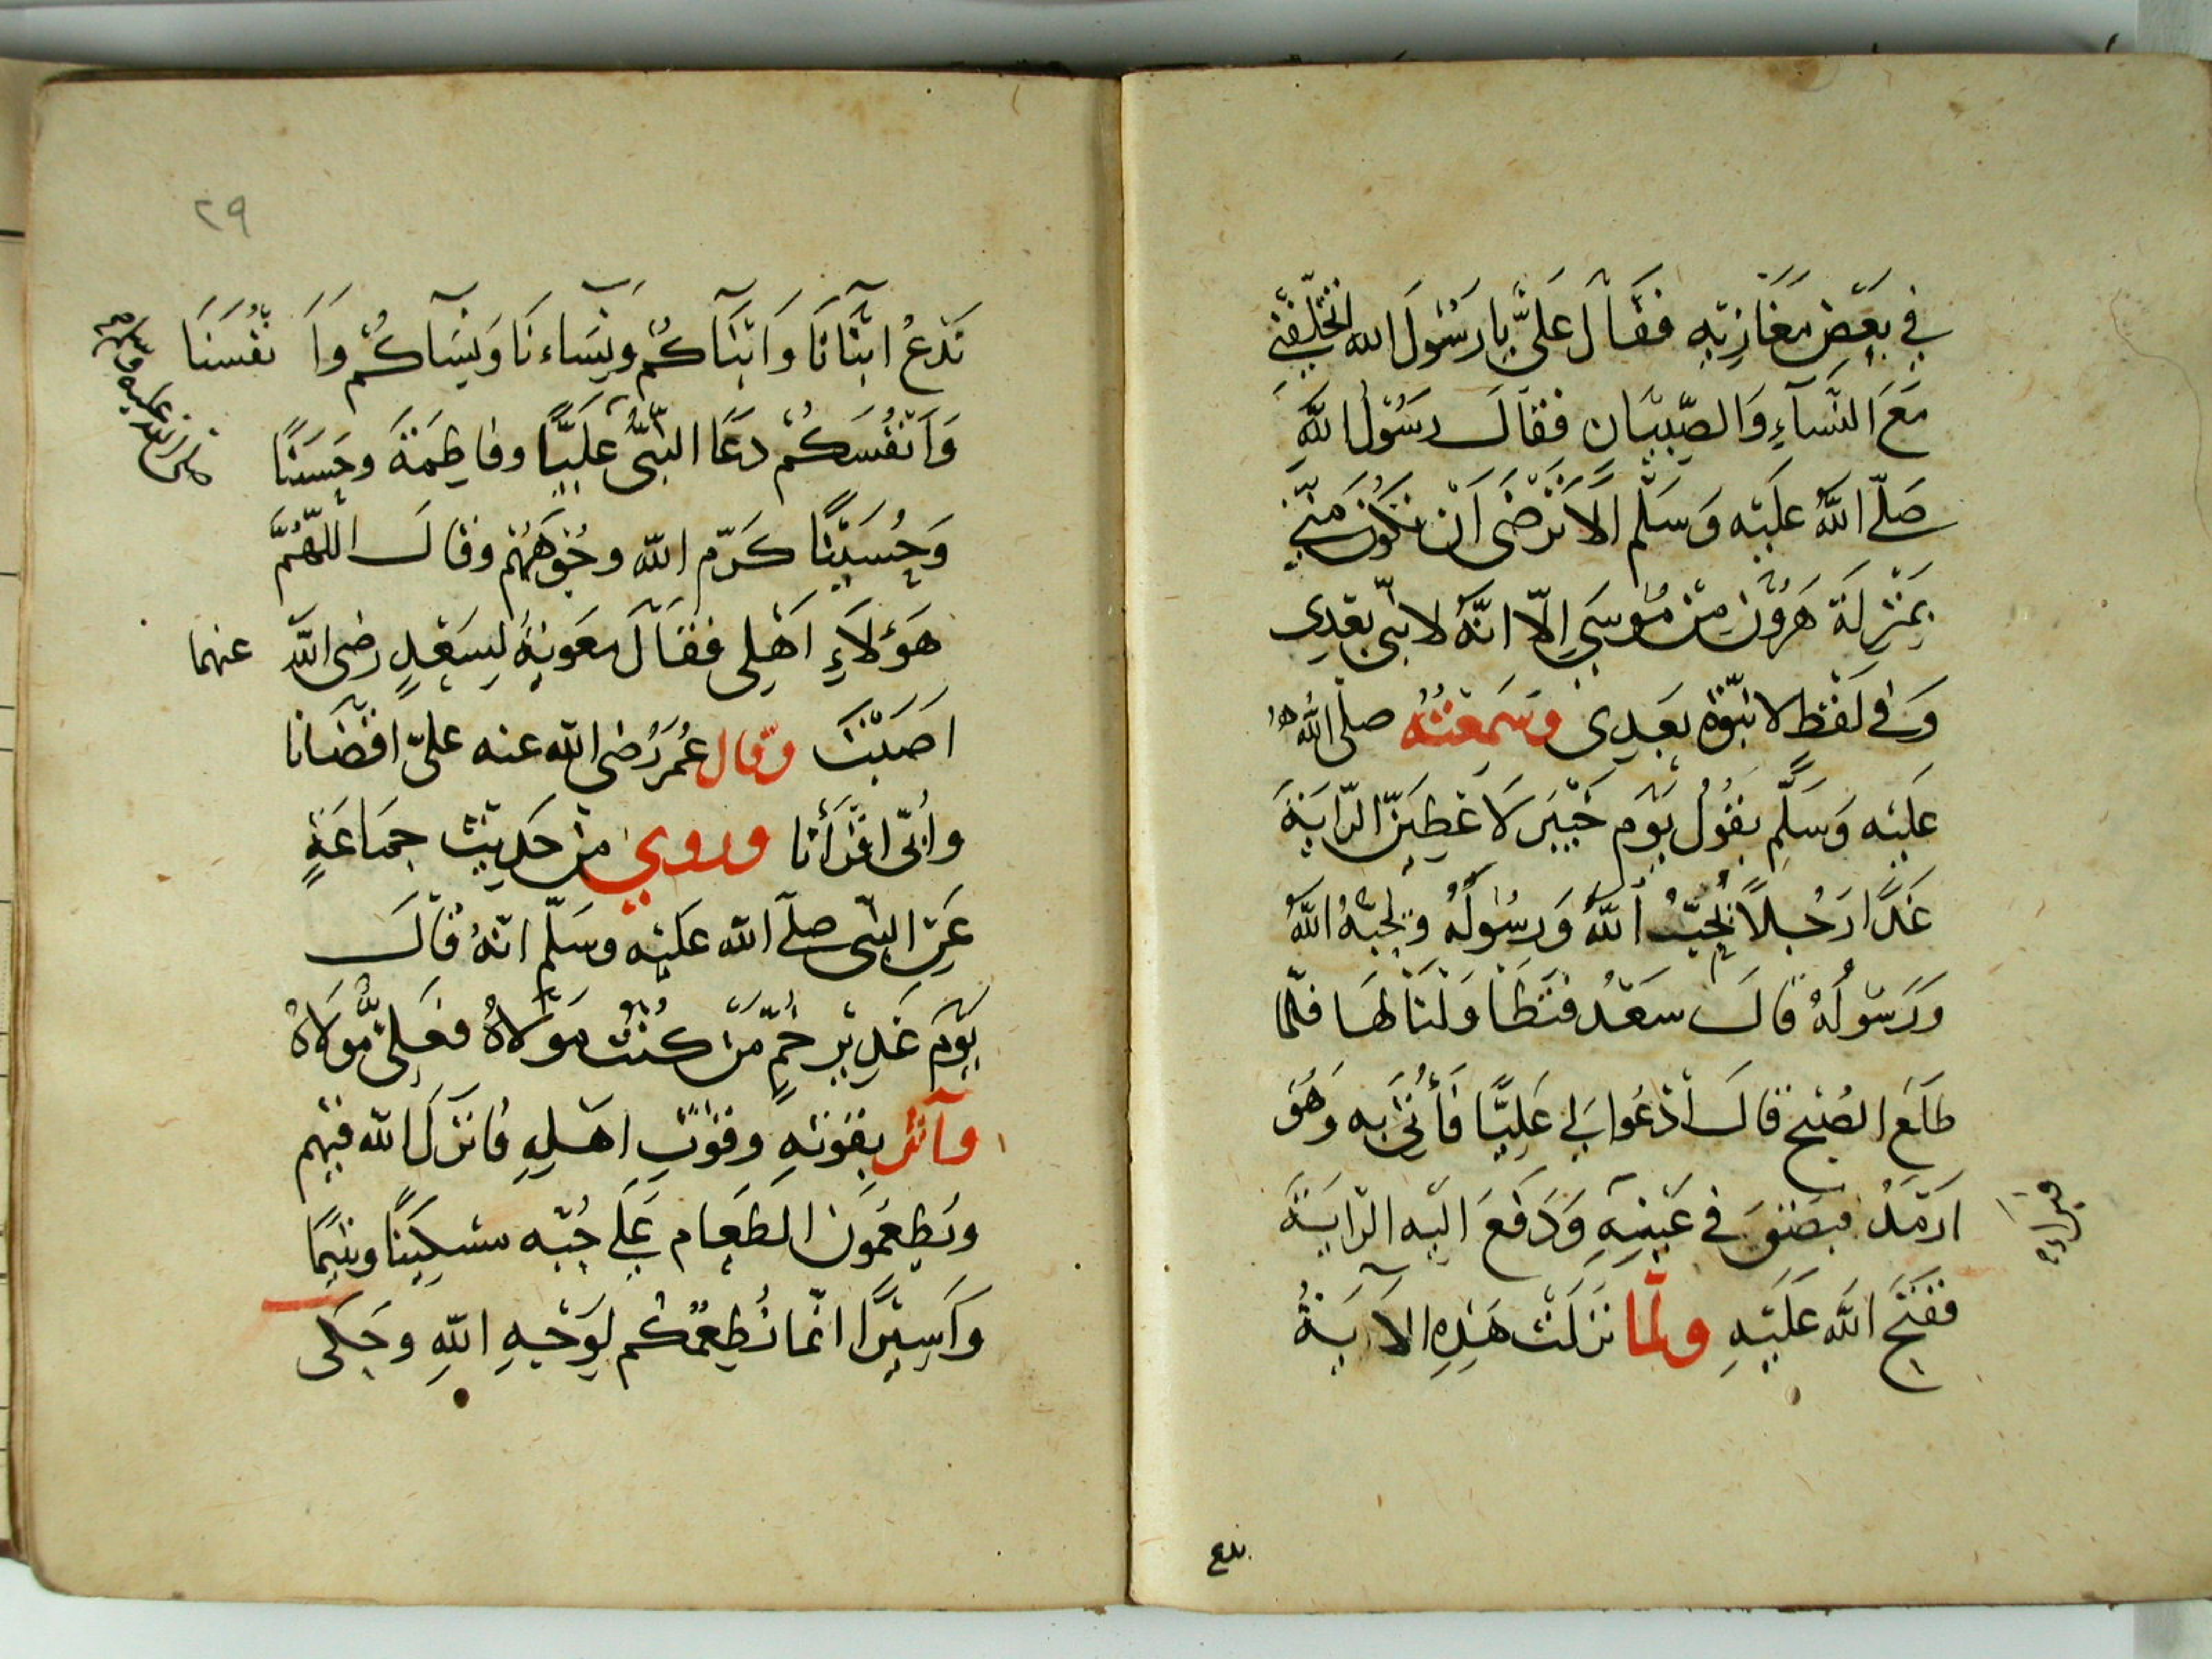 في بعض مغازيه فقال علي يا رسول الله اتخلفني
مع النساء والصبيان فقال رسول الله
صلى الله عليه وسلم الا ترضى ان تكون مني
بمنزلة هرون من موسى الا انه لا نبي بعدي
وفي لفظ لا نبوة بعدي وسمعته صلى الله
عليه وسلم يقول يوم خيبر لاعطين الراية
غدا رجلا يحب الله ورسوله ويحبه الله
ورسوله قال سعد فتطاولنا لها فلما
طلع الصبح قال ادعوا لي عليا فأتى به وهو
ارمد فبصق في عينه ودفع اليه الراية
ففتح الله عليه ولما نزلت هذه الاية
ندع
٢٩
ندع ابنانا وابنآكم ونساءنا ونسآكم وا نفسنا
وانفسكم دعا النبي عليا وفاطمة وحسنا
وحسينا كرم الله وجوههم وقال اللهم
هؤلاء اهلي فقال معوية لسعد رضى الله عنهما
اصبت وقال عمر رضى الله عنه علي اقضانا
وأبي اقرأنا وروي من حديث جماعة
عن النبي صلى الله عليه وسلم انه قال
يوم غدير خم من كنت مولاه فعلي مولاه
وآثر بقوته وقوت اهله فانزل الله فيهم
ويطعمون الطعام على حبه مسكينا ويتيما
واسيرا انما نطعمكم لوجه الله وحكى